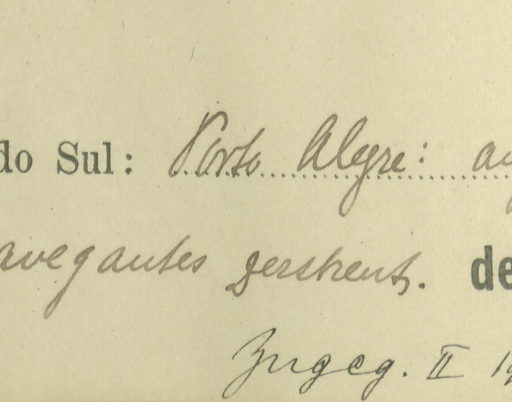 do Sul: Porto Alegre: au
avegantes zerstreut. de
Zngeg. II 19